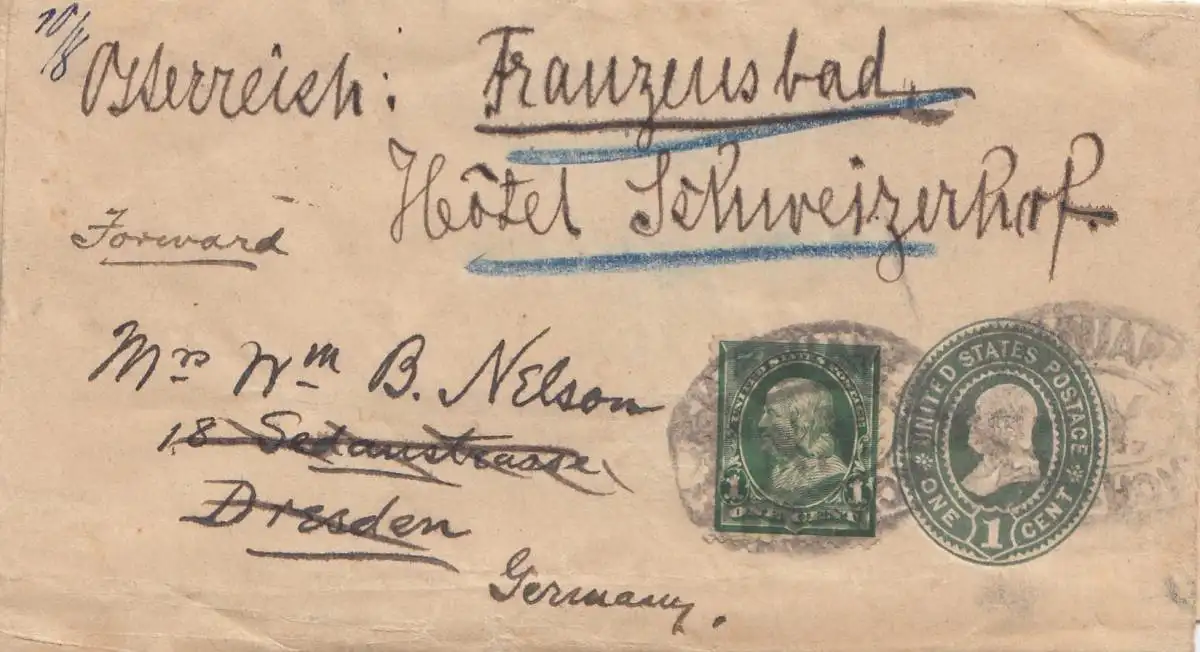 10/8
Österreich: Franzensbad,
Hôtel Schweizerhof.
Forward
Mrs Wm B. Nelson
18 Sedanstrasse
Dresden
Germany.
UNITED STATES POSTAGE
1 1
ONE CENT
UNITED STATES POSTAGE
ONE 1 CENT